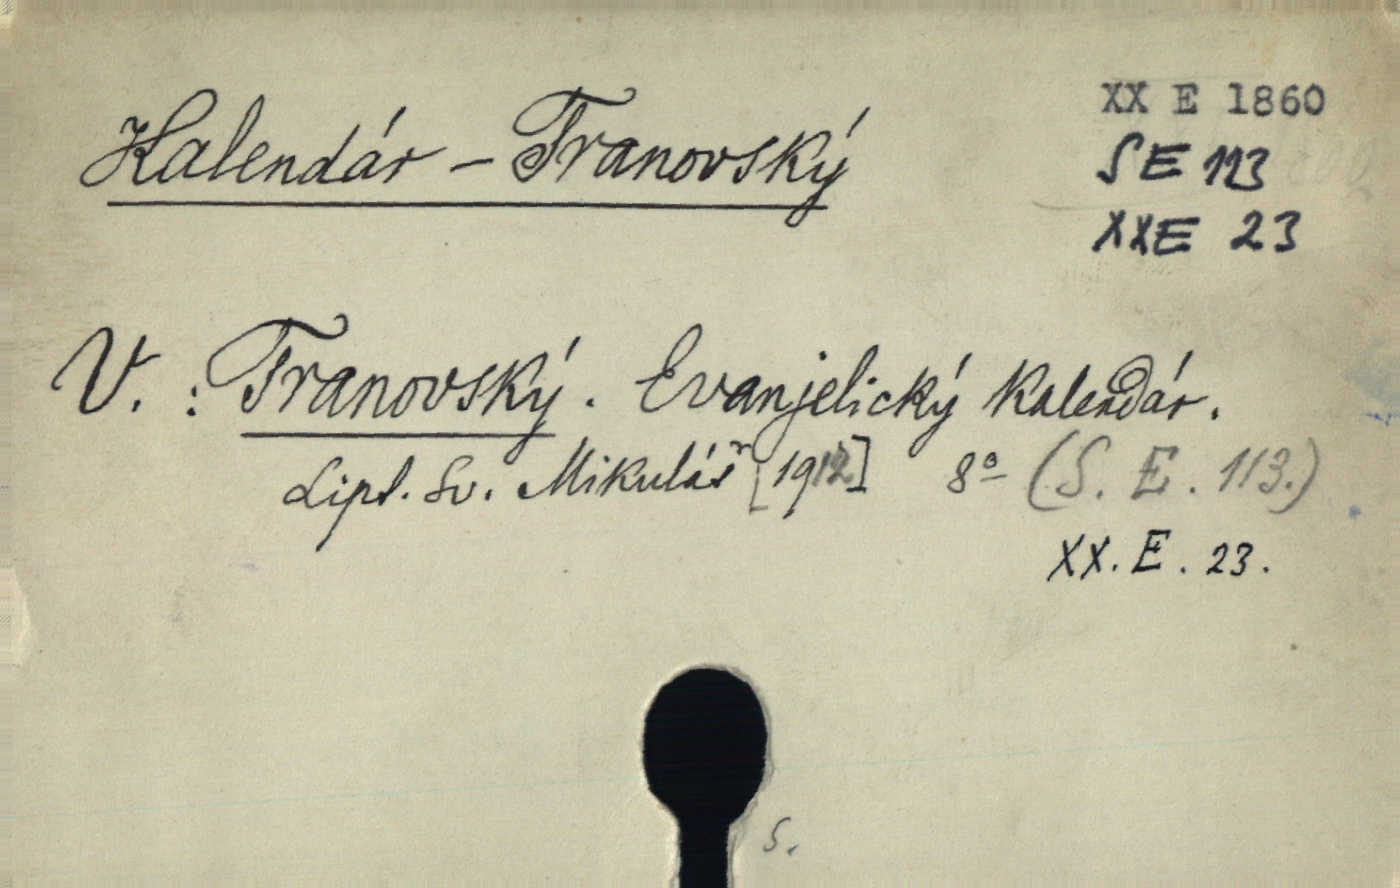 Kalendár – Tranovský
XX E 1860
SE 113
XXE 23
V. : Tranovský. Evanjelický kalendár.
Lipt. Sv. Mikuláš [1912] 8° (S. E. 113.)
XX. E. 23.
S.